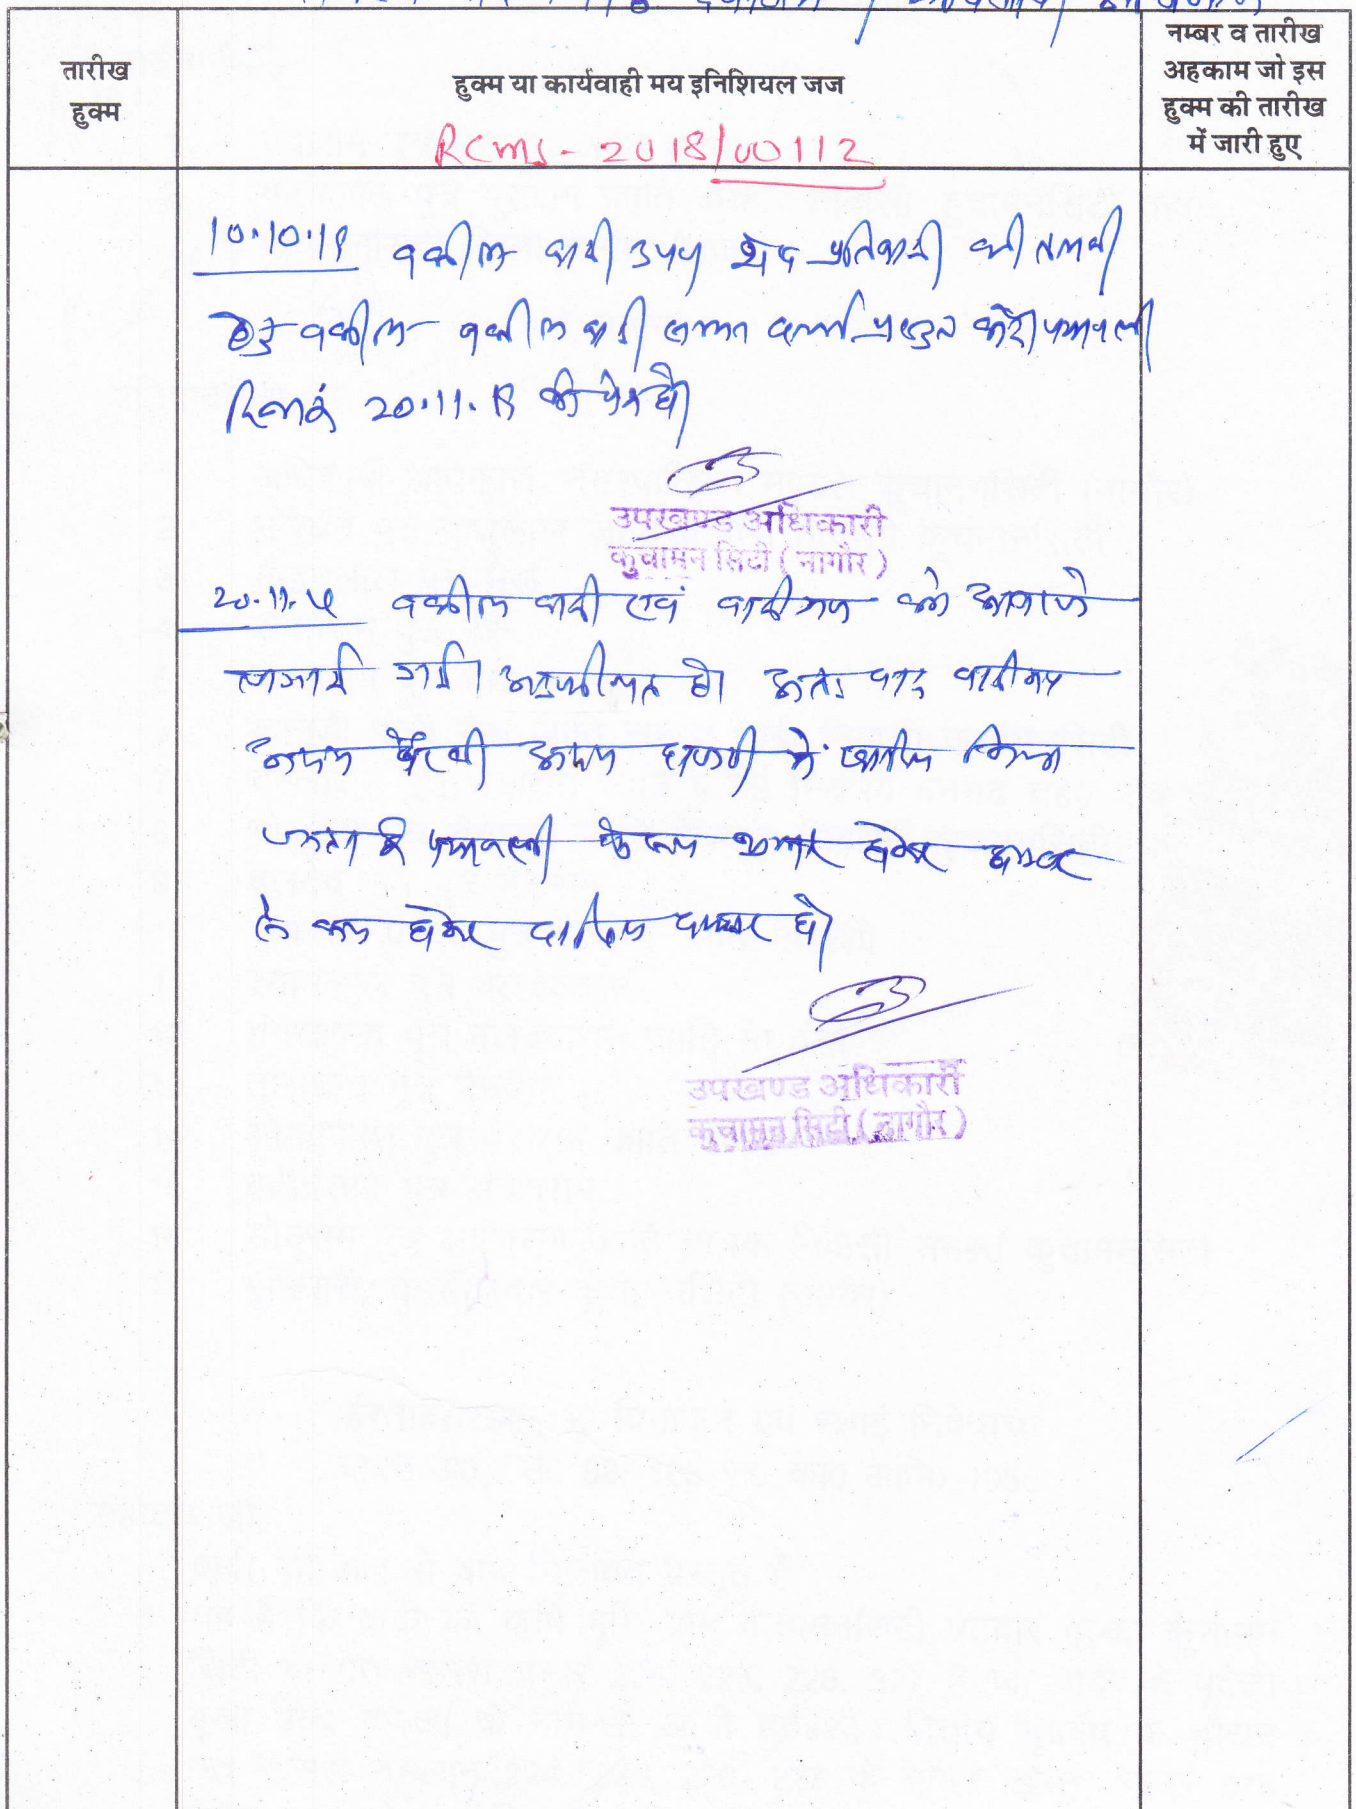 तारीख
हुक्म
हुक्म या कार्यवाही मय इनिशियल जज
नम्बर व तारीख
अहकाम जो इस
हुक्म की तारीख
में जारी हुए
RCMS - 2018/00112
10.10.19 वकील वादी उपप शेष प्रतिवादी की तलबी
हेतु वकील वकील वादी प्रस्तुत करे। पत्रावली
दिनांक 20.11.19 को पेश हो।
उपखण्ड अधिकारी
कुचामन सिटी (नागौर)
20.11.19 वकील वादी एवं वादीगण को आवाजे
लगवाई गई। अनुपस्थित है। अतः वाद वादीगण
अदम पैरवी अदम हाजरी में खारीज किया
जाता है पत्रावली फैसल शुमार होकर
से कम होकर दाखिल दफ्तर हो।
उपखण्ड अधिकारी
कुचामन सिटी (नागौर)